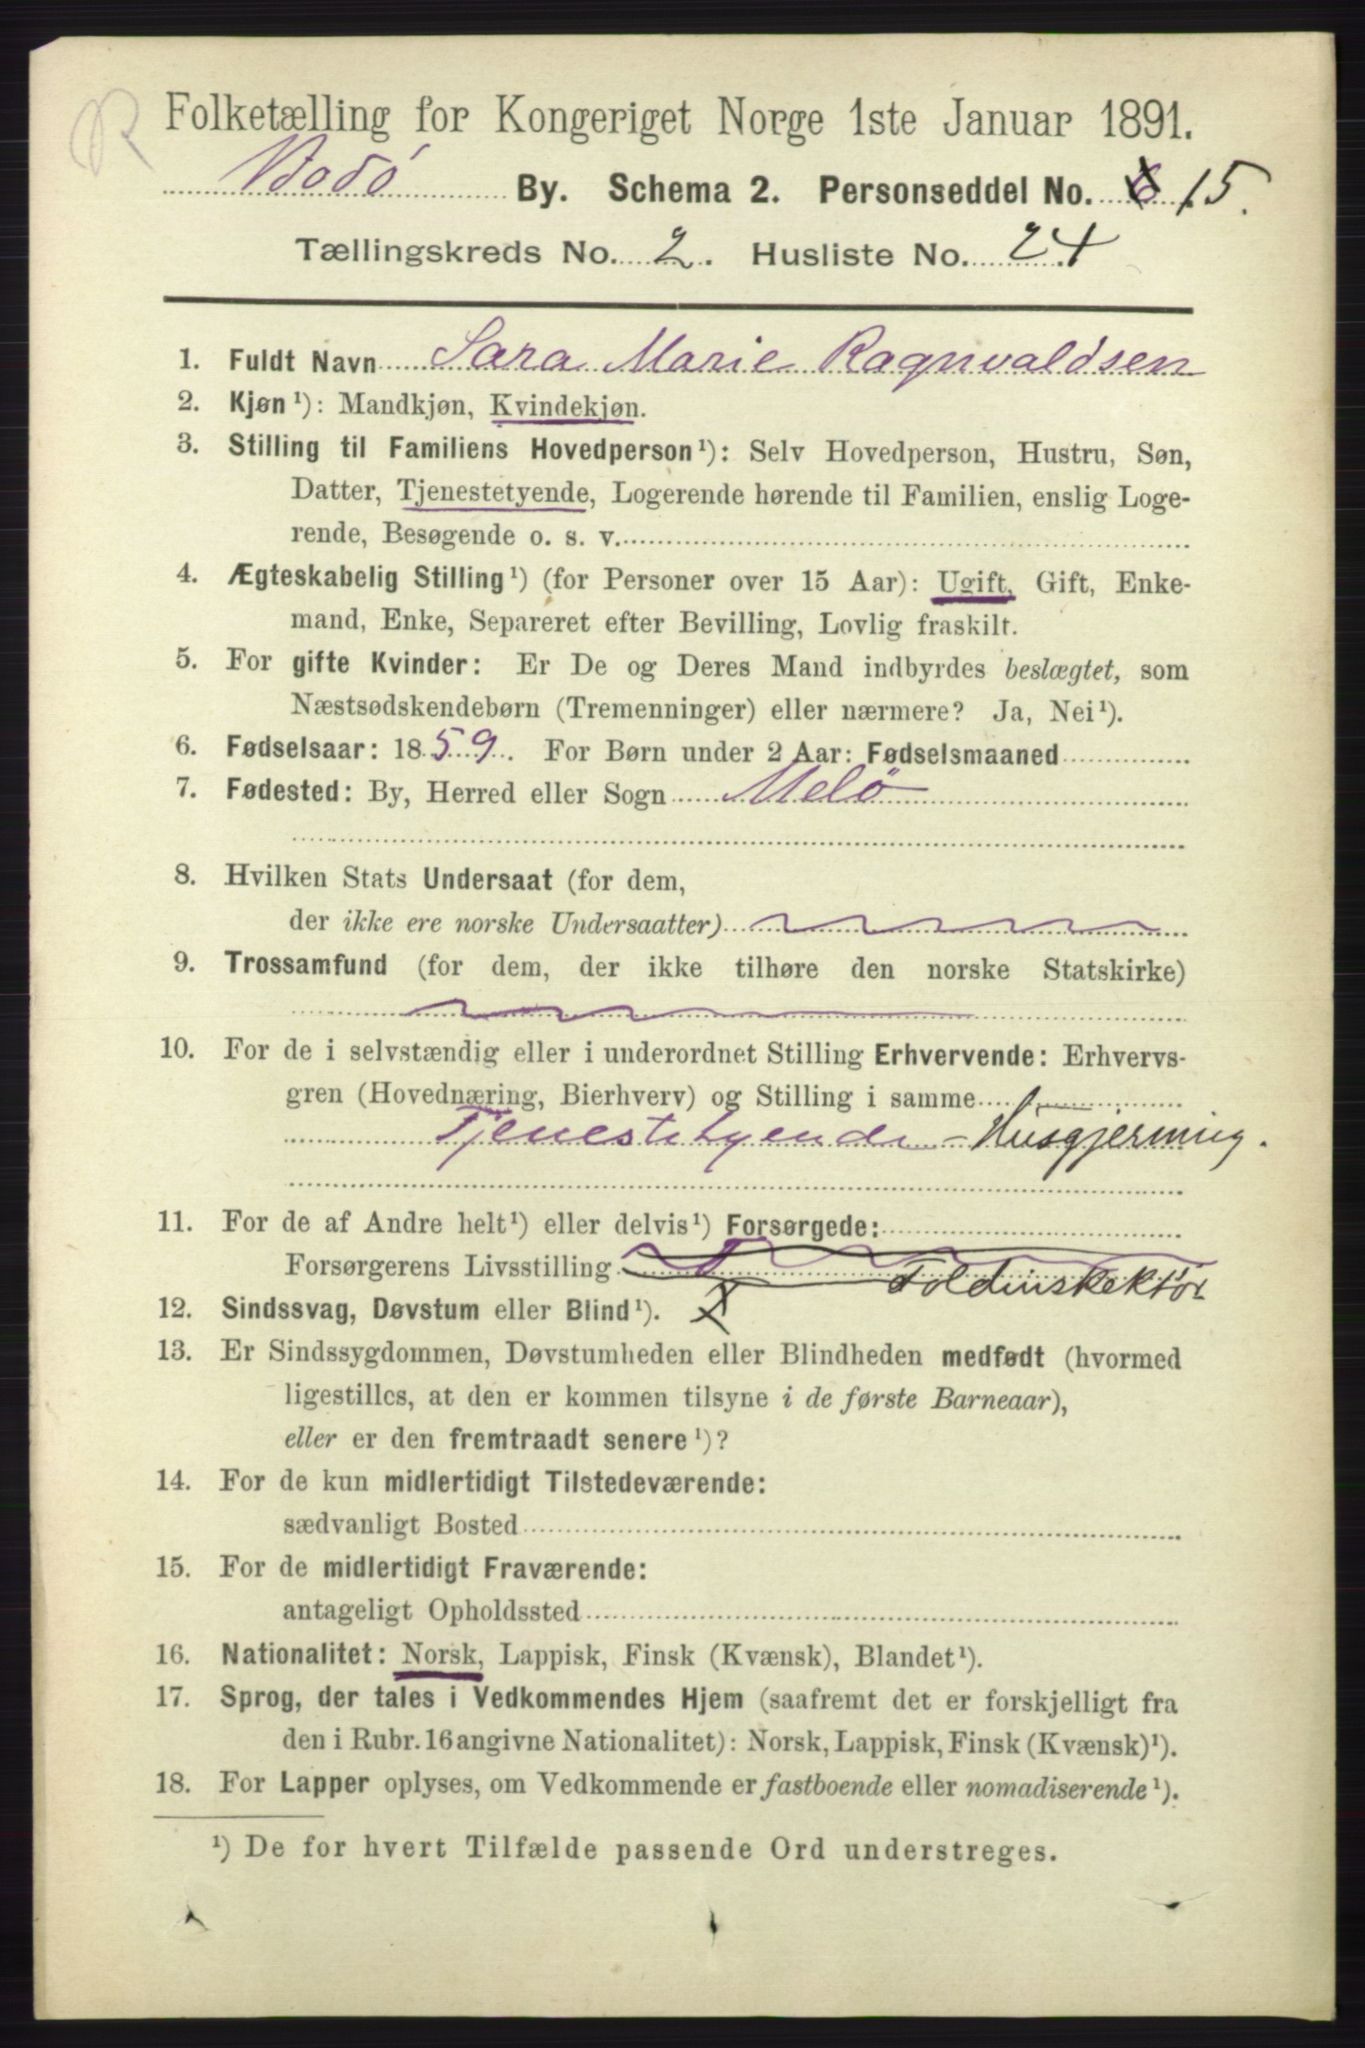 R
Folketælling for Kongeriget Norge 1ste Januar 1891.
Bodø By. Schema 2. Personseddel No. 6 15.
Tællingskreds No. 2. Husliste No. 24
1. Fuldt Navn Sara Marie Ragnvaldsen
2. Kjøn¹): Mandkjøn, Kvindekjøn.
3. Stilling til Familiens Hovedperson¹): Selv Hovedperson, Hustru, Søn,
Datter, Tjenestetyende, Logerende hørende til Familien, enslig Loge-
rende, Besøgende o. s. v.
4. Ægteskabelig Stilling¹) (for Personer over 15 Aar): Ugift, Gift, Enke-
mand, Enke, Separeret efter Bevilling, Lovlig fraskilt.
5. For gifte Kvinder: Er De og Deres Mand indbyrdes beslægtet, som
Næstsødskendebørn (Tremenninger) eller nærmere? Ja, Nei¹).
6. Fødselsaar: 1859. For Børn under 2 Aar: Fødselsmaaned
7. Fødested: By, Herred eller Sogn Melö
8. Hvilken Stats Undersaat (for dem,
der ikke ere norske Undersaatter)
9. Trossamfund (for dem, der ikke tilhøre den norske Statskirke)
10. For de i selvstændig eller i underordnet Stilling Erhvervende: Erhvervs-
gren (Hovednæring, Bierhverv) og Stilling i samme
Tjenestetyende - Husgjerning.
11. For de af Andre helt¹) eller delvis¹) Forsørgede:
Forsørgerens Livsstilling Toldinskektør
12. Sindssvag, Døvstum eller Blind¹).
13. Er Sindssygdommen, Døvstumheden eller Blindheden medfødt (hvormed
ligestilles, at den er kommen tilsyne i de første Barneaar),
eller er den fremtraadt senere¹)?
14. For de kun midlertidigt Tilstedeværende:
sædvanligt Bosted
15. For de midlertidigt Fraværende:
antageligt Opholdssted
16. Nationalitet: Norsk, Lappisk, Finsk (Kvænsk), Blandet¹).
17. Sprog, der tales i Vedkommendes Hjem (saafremt det er forskjelligt fra
den i Rubr. 16 angivne Nationalitet): Norsk, Lappisk, Finsk (Kvænsk)¹).
18. For Lapper oplyses, om Vedkommende er fastboende eller nomadiserende¹).
¹) De for hvert Tilfælde passende Ord understreges.